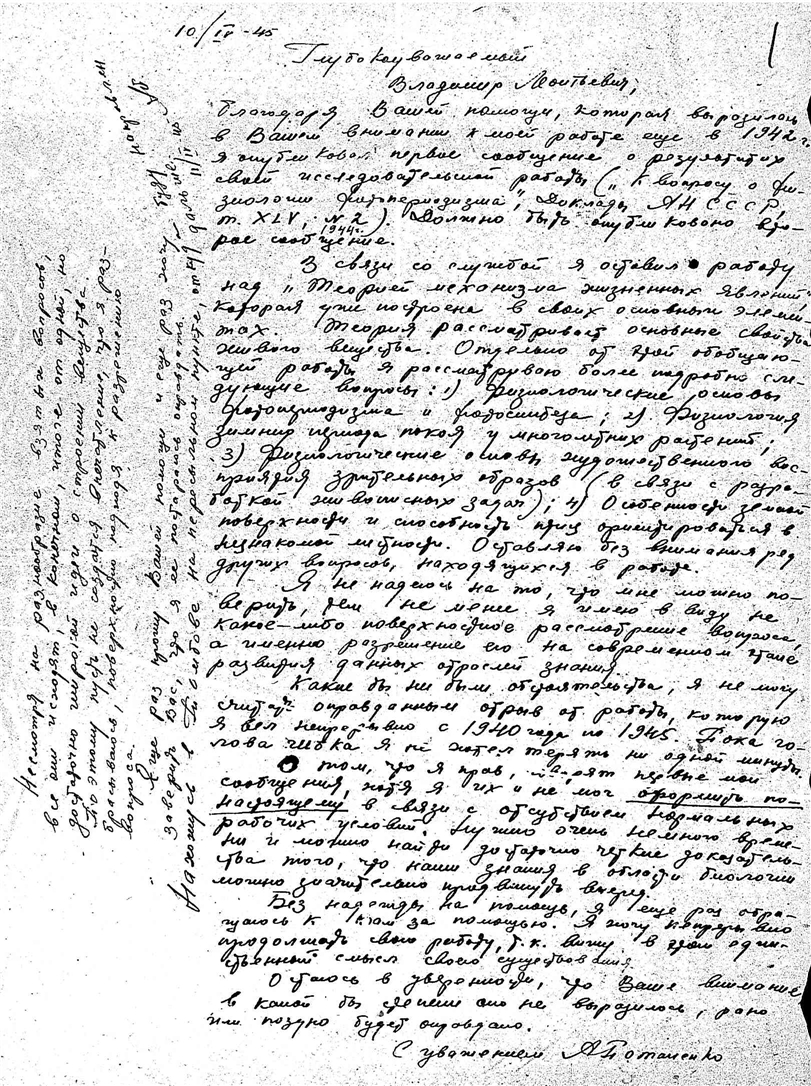 10/IV-45
1
Глубокоуважаемый
Владимир Леонтьевич,
благодаря Вашей помощи, которая выразилась
в Вашем внимании к моей работе еще в 1942 г.
я опубликовал первое сообщение о результатах
своей исследовательской работы („К вопросу о фи-
зиологии фотопериодизма", Доклады АН СССР,
т. XLV, №2, 1944г.). Должно быть опубликовано вто-
рое сообщение.
В связи со службой я оставил работу
над „Теорией механизма жизненных явлений"
которая уже построена в своих основных элемен-
тах. Теория рассматривает основные свойства
живого вещества. Отдельно от этой обобщаю-
щей работы я рассматриваю более подробно сле-
дующие вопросы: 1) Физиологические основы
фотопериодизма и фотосинтеза; 2) Физиология
зимнего периода покоя у многолетних растений;
3) Физиологические основы художественного вос-
приятия зрительных образов (в связи с разра-
боткой живописных задач); 4) Особенности земной
поверхности и способность птиц ориентироваться в
незнакомой местности. Оставляю без внимания ряд
других вопросов, находящихся в работе.
Я не надеюсь на то, что мне можно по-
верить, тем не менее я имею в виду не
какое-либо поверхностное рассмотрение вопроса,
а именно разрешение его на современном этапе
развития данных отраслей знания.
Какие бы ни были обстоятельства, я не могу
считать оправданным отрыв от работы, которую
я вел непрерывно с 1940 года по 1945. Пока го-
лова гибка я не хотел терять ни одной минуты.
О том, что я прав, говорят первые мои
сообщения, хотя я их и не мог оформить по-
настоящему в связи с отсутствием нормальных
рабочих условий. Нужно очень немного време-
ни и можно найти достаточно четкие доказатель-
ства того, что наши знания в области биологии
можно значительно продвинуть вперед.
Без надежды на помощь, я еще раз обра-
щаюсь к Вам за помощью. Я хочу непрерывно
продолжать свою работу, т.к. вижу в этом един-
ственный смысл своего существования.
Остаюсь в уверенности, что Ваше внимание
в какой бы степени оно не выразилось, рано
или поздно будет оправдано.
С уважением АПотапенко
Несмотря на разнообразие взятых вопросов,
все они исходят, в конечном, итоге от одной, но
достаточно широкой идеи о строении вещества.
Поэтому пусть не создастся впечатление, что я раз-
брасываюсь, поверхностно подходя к разрешению
вопроса.
Еще раз прошу Вашей помощи и еще раз хочу
заверить Вас, что я ее постараюсь оправдать.
Нахожусь в Тамбове на пересыльном пункте, откуда буду направлен
дальше 11/IV 45